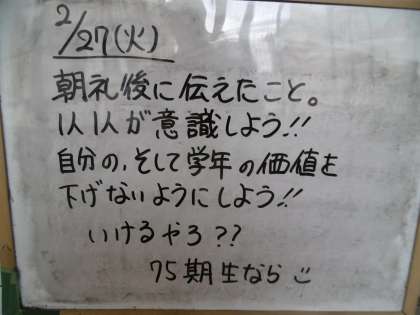 2/27(火)
朝礼後に伝えたこと。
1人1人が意識しよう!!
自分の,そして学年の価値を
下げないようにしよう!!
いけるやろ??
75期生なら